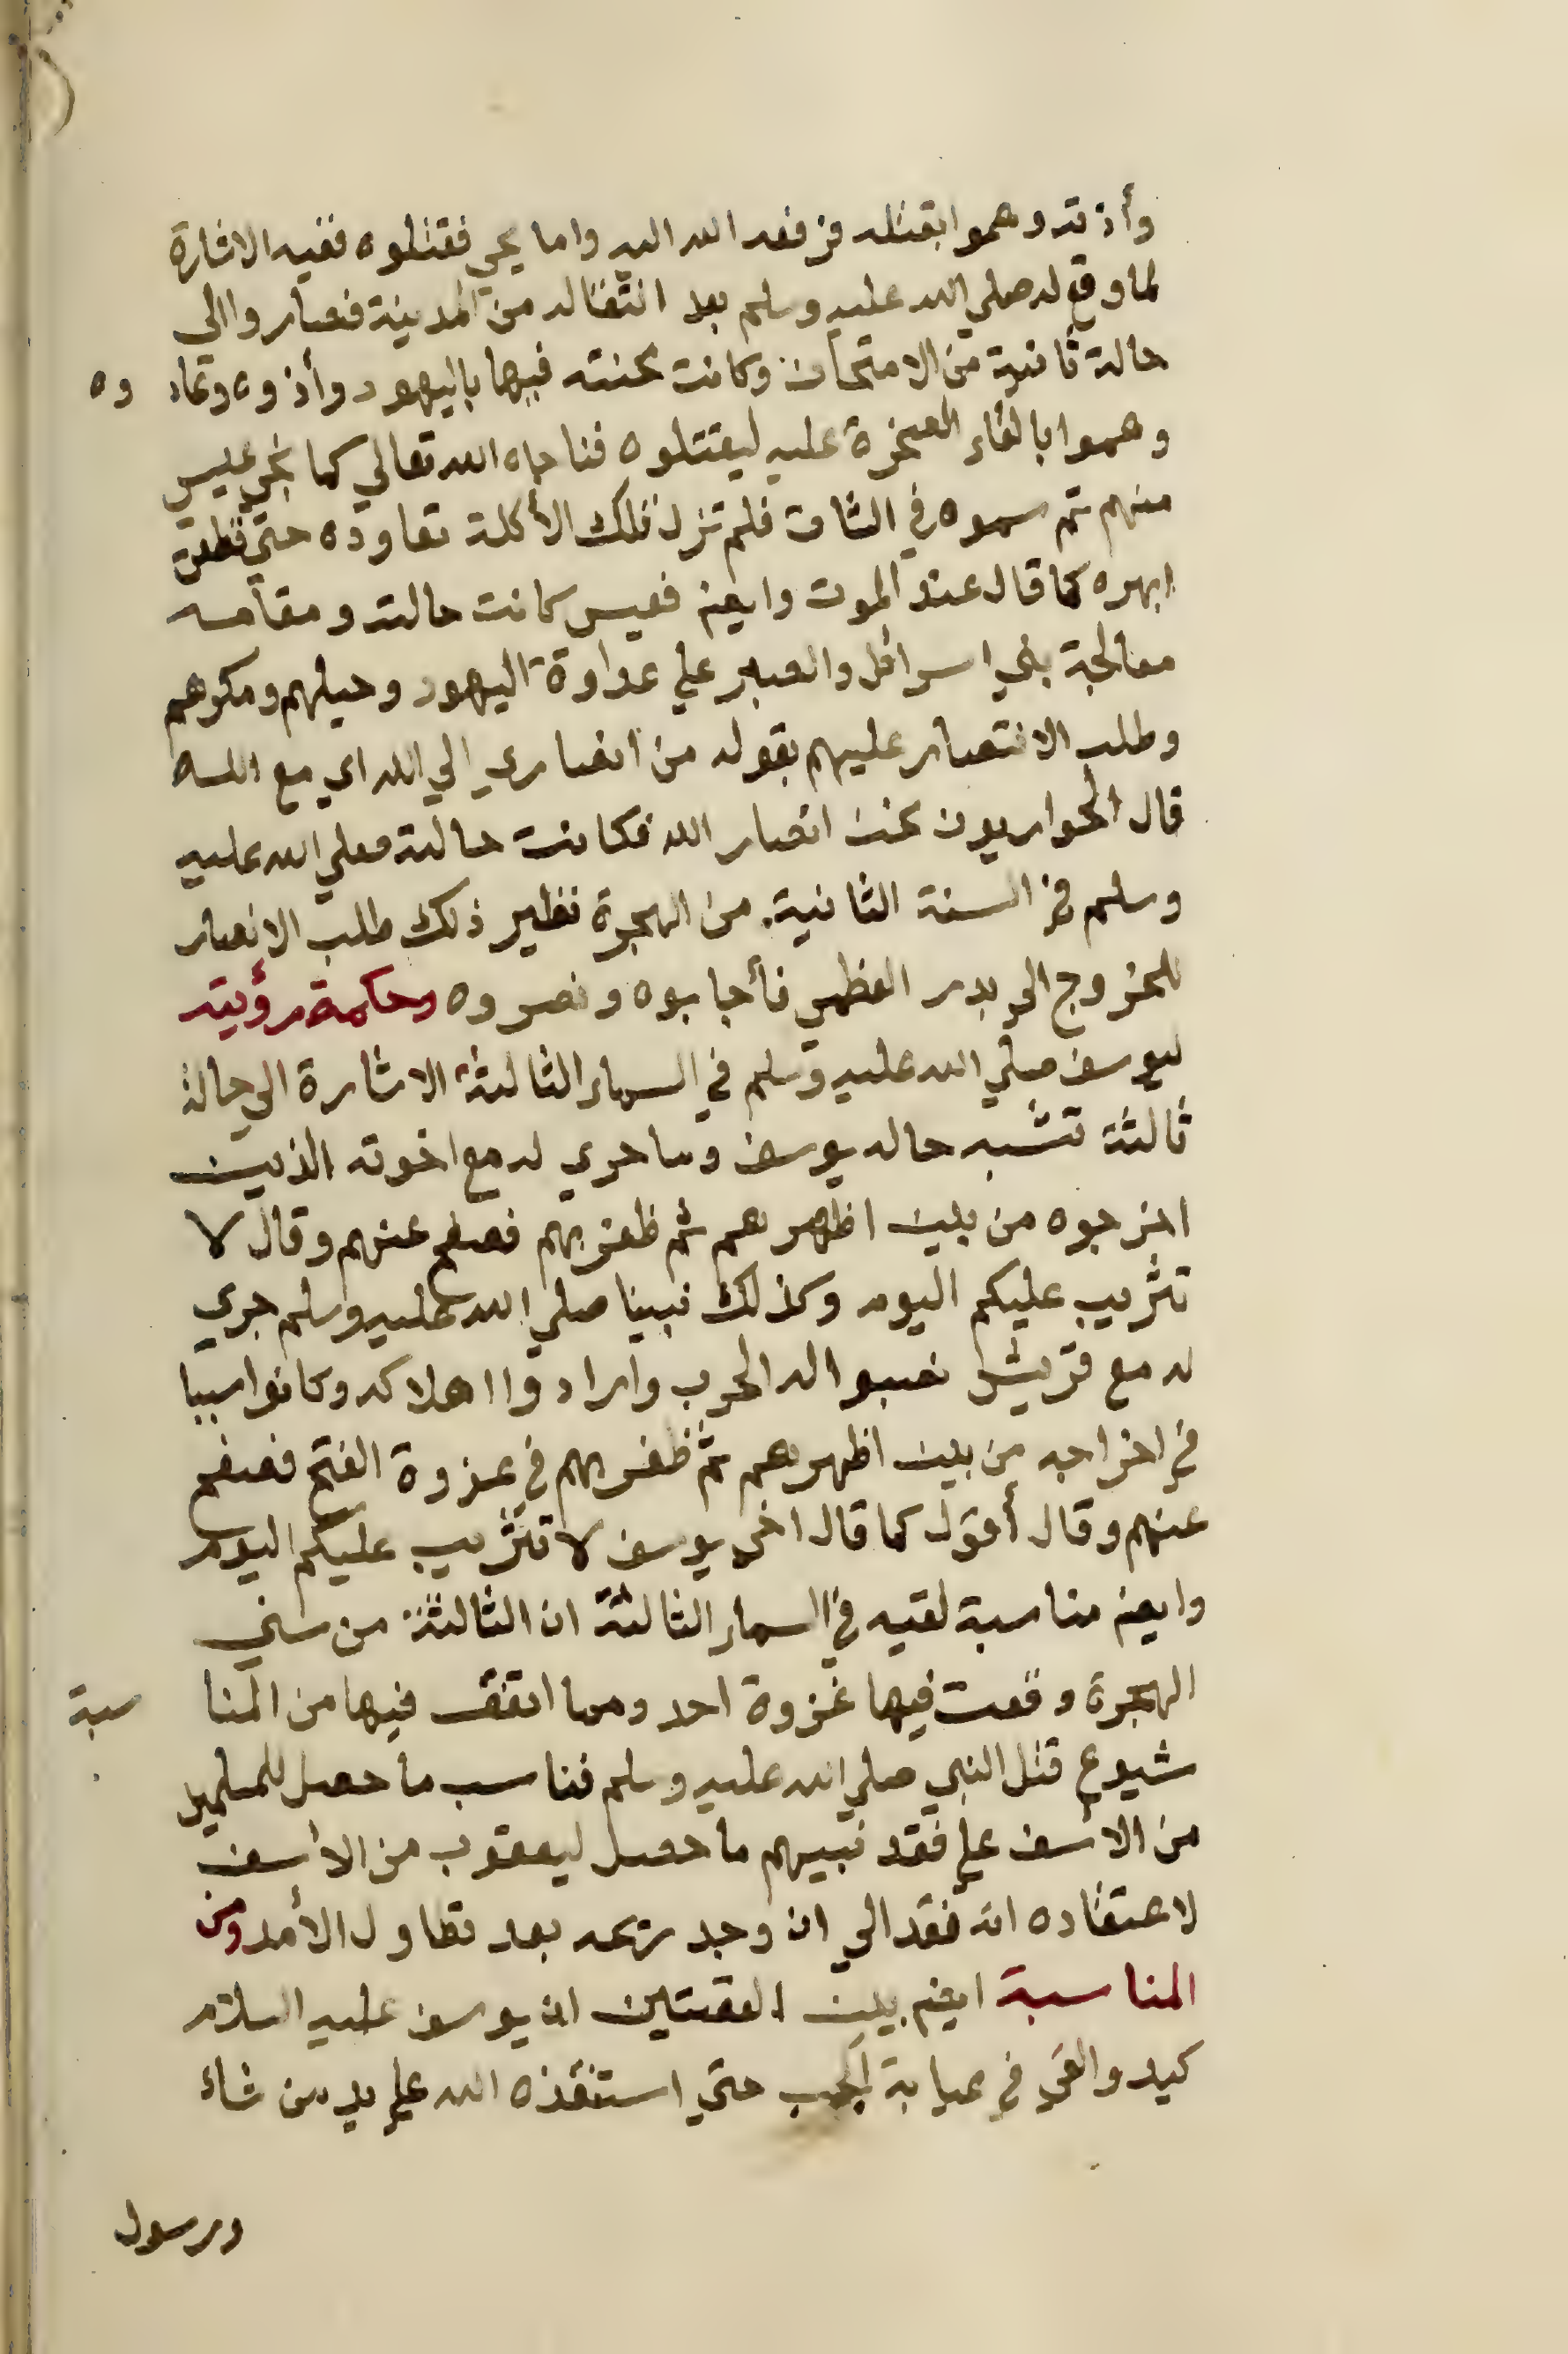 وأذته وهموا بقتله فرفعه الله اليه واما يحيي فقتلوه ففيه الاشارة
لما وقع له صلي الله عليه وسلم بعد انتقاله من المدينة فصار واالي
حالة ثانية من الامتحان وكانت محنته فيها باليهود وأذوه وتمادوه
وهموا بالقاء الصخرة عليه ليقتلوه فنجاه الله تعالي كما نجي عيسي
منهم ثم سموه في الشاة فلم تزل تلك الأكلة تعاوده حتي قطعت
ابهره كما قال عند الموت وايضا فعيسي كانت حالته ومقامه
معالجة بني اسرائل والصبر علي عداوة اليهود وحيلهم ومكرهم
وطلب الانتصار عليهم بقوله من انصاري الي الله اي مع الله
قال الحواريون نحن انصار الله فكانت حالته صلي الله عليه
وسلم في السنة الثانية من الهجرة نظير ذلك طلب الانصار
للخروج الي بدر العظمي فأجابوه ونصروه وحكمة رؤيته
ليوسف صلي الله عليه وسلم في السماء الثالثة الاشارة الي حالة
ثالثة تشبه حاله يوسف وما جري له مع اخوته الذين
اخرجوه من بين اظهرهم ثم ظفر بهم فصفح عنهم وقال لا
تثريب عليكم اليوم وكذلك نبينا صلي الله عليه وسلم جري
له مع قريش نصبوا له الحرب وارادوا اهلاكه وكانوا سببا
في اخراجه من بين اظهرهم ثم ظفر بهم في غزوة الفتح فصفح
عنهم وقال أقول كما قال اخي يوسف لا تثريب عليكم اليوم
وايضا مناسبة لقيه في السماء الثالثة ان الثالثة من سني
الهجرة وقعت فيها غزوة احد ومما اتفق فيها من المناسبة
شيوع قتل النبي صلي الله عليه وسلم فناسب ما حصل للمسلمين
من الاسف علي فقد نبيهم ما حصل ليعقوب من الاسف
لاعتقاده انه فقد الي ان وجد ريحه بعد تطاول الأمد ومن
المناسبة ايضا بين القصتين ان يوسف عليه السلام
كيد والقي في غيابة الجب حتي استنقذه الله علي يد من شاء
ورسول